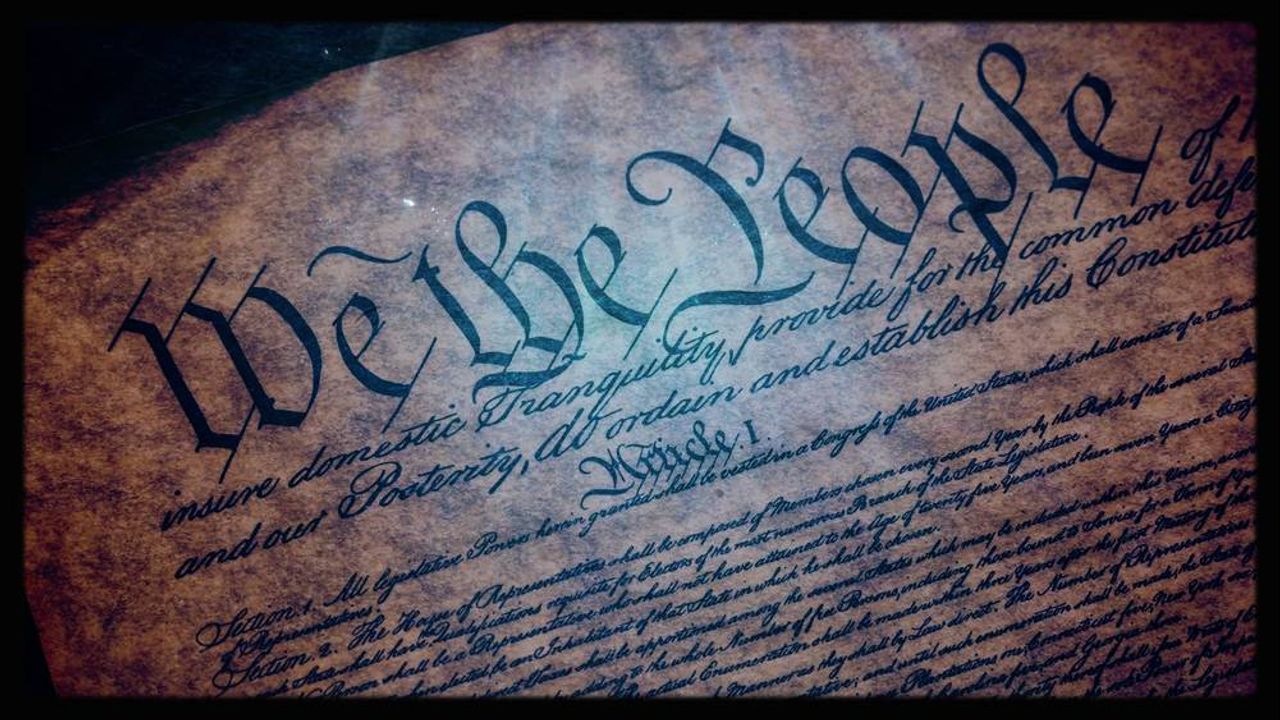 We the People of
insure domestic Tranquility, provide for the common defe
and our Posterity, do ordain and establish this Constituti
Article. I.
Section. 1. All legislative Powers herein granted shall be vested in a Congress of the United States, which shall consist of a Senat
of Representatives.
Section. 2. The House of Representatives shall be composed of Members chosen every second Year by the People of the several Sta
each State shall have the Qualifications requisite for Electors of the most numerous Branch of the State Legislature.
Person shall be a Representative who shall not have attained to the Age of twenty five Years, and been seven Years a Citize
when elected, be an Inhabitant of that State in which he shall be chosen.
Taxes shall be apportioned among the several States which may be included within this Union,
adding to the whole Number of free Persons, including those bound to Service for a Term of
Actual Enumeration shall be made within three Years after the first Meeting of the
Manner as they shall by Law direct. The Number of Representatives
and until such enumeration shall be made, the State of
Plantations one, Connecticut five, New York
and Georgia three.